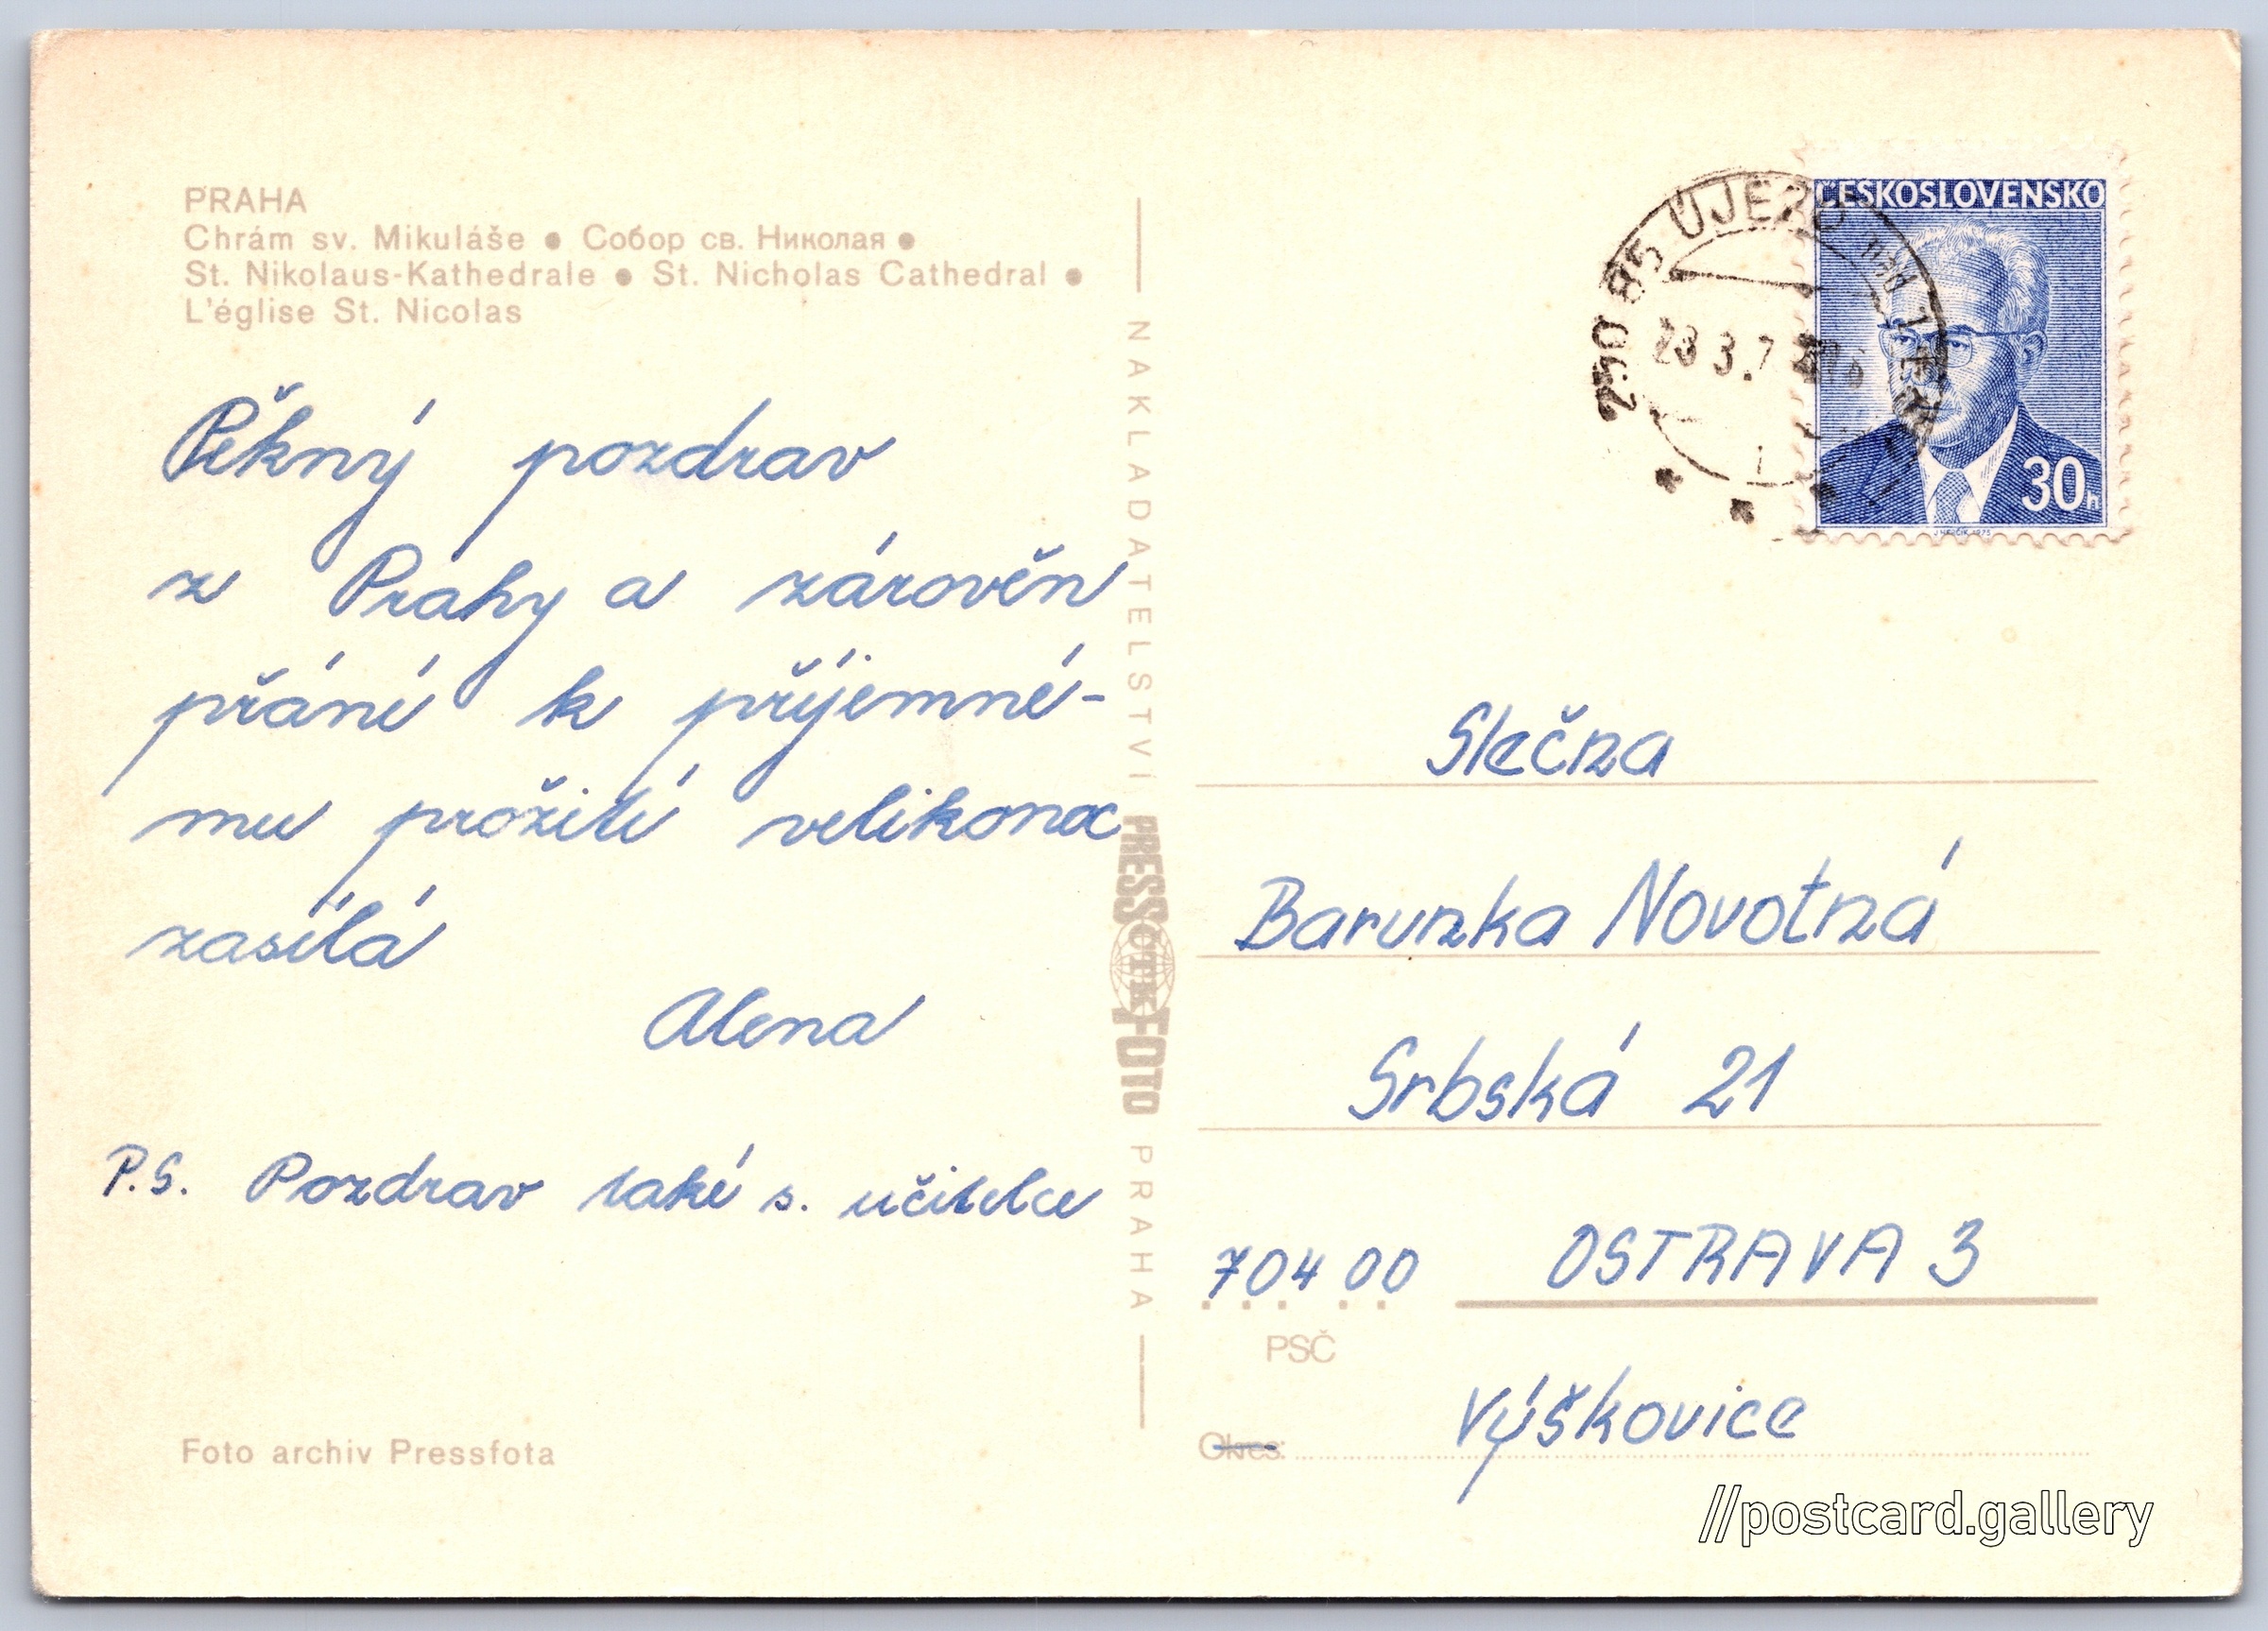 PRAHA
Chrám sv. Mikuláše ● Собор св. Николая ●
St. Nikolaus-Kathedrale ● St. Nicholas Cathedral ●
L'église St. Nicolas
Pěkný pozdrav
z Prahy a zárověn
přání k příjemné-
mu prožití velikonoc
zasílá
Alena
P.S. Pozdrav také s. učitelce
Foto archiv Pressfota
NAKLADATELSTVÍ PRESSFOTO PRAHA
ČTK
250 85 ÚJEZD
ČESKOSLOVENSKO
30h
Slečna
Barunka Novotná
Srbská 21
704 00 OSTRAVA 3
PSČ
Výškovice
Okres:
//postcard.gallery